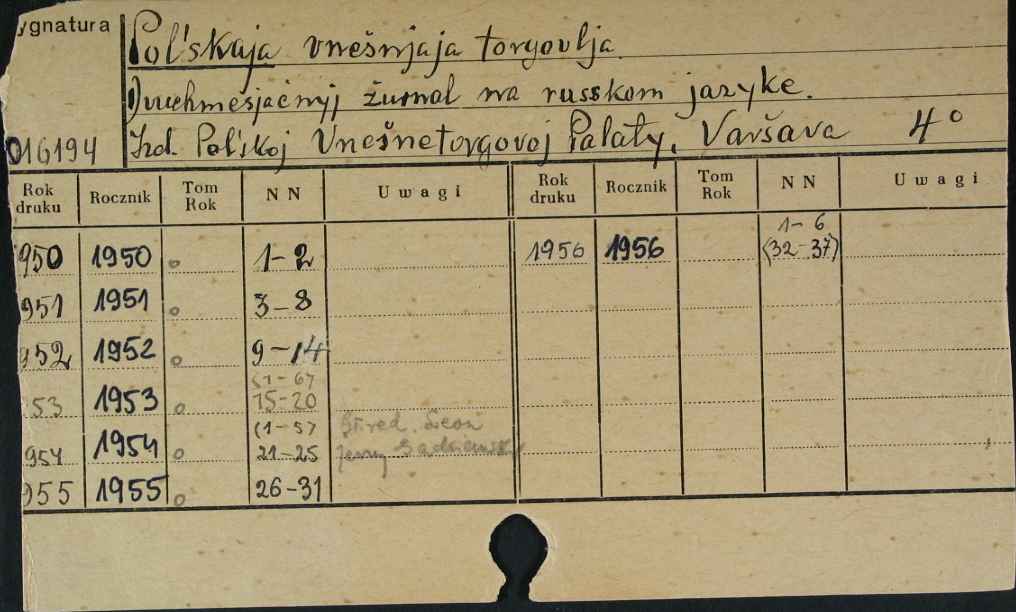 ygnatura
Pol'skaja vnešnjaja torgovlja.
Dvuchmesjačnyj žurnal na russkom jazyke.
016194 Izd. Pol'skoj Vnešnetorgovoj Palaty, Varšava 4°
Rok druku Rocznik Tom Rok NN Uwagi Rok druku Rocznik Tom Rok NN Uwagi
1-6
950 1950 1-2 1956 1956 (32-37)
951 1951 3-8
952 1952 9-14
(1-6)
53 1953 15-20
(1-5) red.
954 1954 21-25 Jerzy
955 1955 26-31